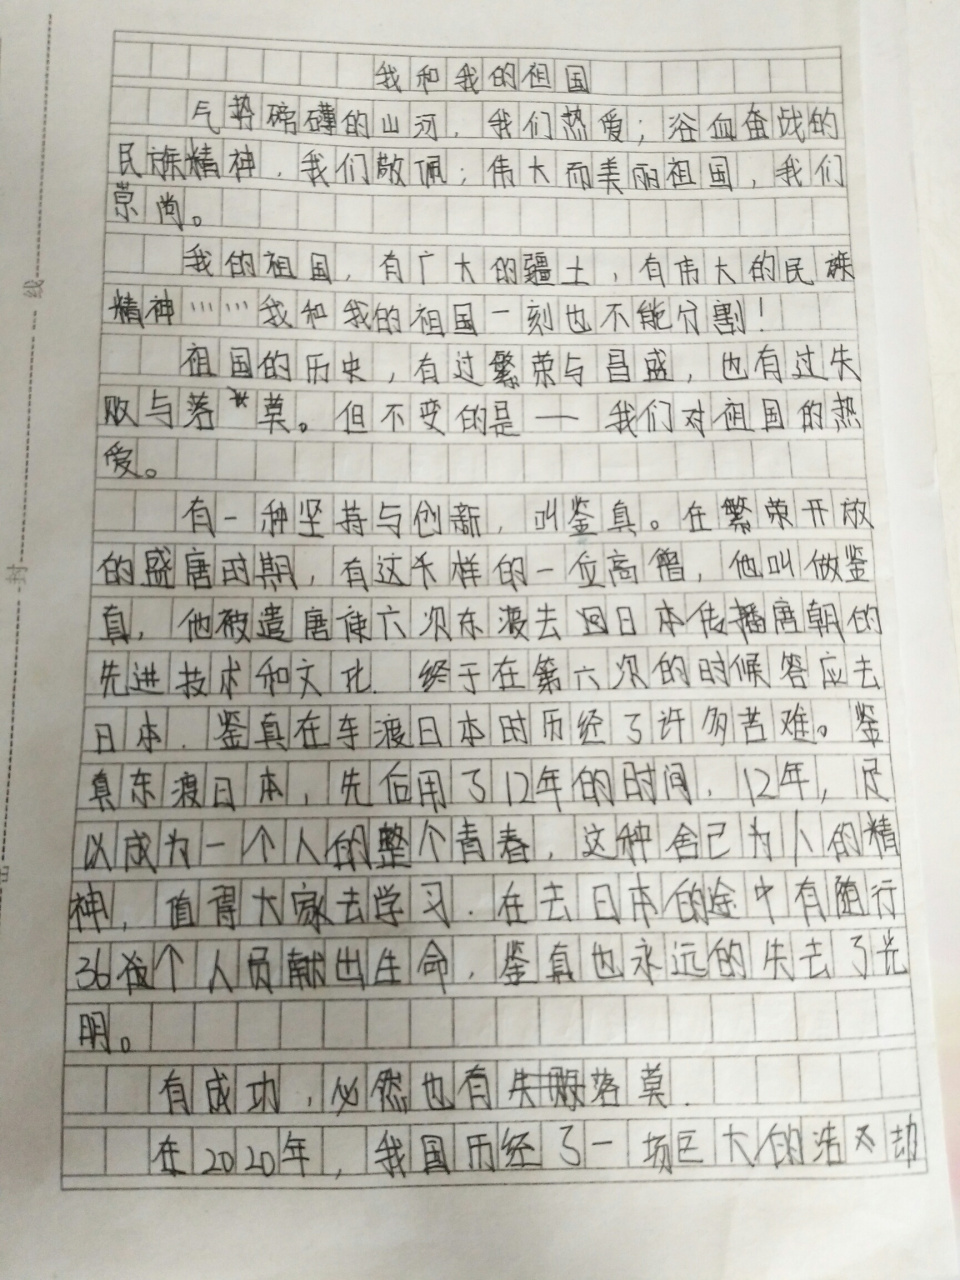 我和我的祖国
气势磅礴的山河，我们热爱；浴血奋战的
民族精神，我们敬佩；伟大而美丽祖国，我们
崇尚。
我的祖国，有广大的疆土，有伟大的民族
精神……我和我的祖国一刻也不能分割！
祖国的历史，有过繁荣与昌盛，也有过失
败与落莫。但不变的是——我们对祖国的热
爱。
有一种坚持与创新，叫鉴真。在繁荣开放
的盛唐时期，有这样的一位高僧，他叫做鉴
真，他被遣唐使六次东渡去回日本传播唐朝的
先进技术和文化．终于在第六次的时候答应去
日本．鉴真在车渡日本时历经了许多苦难。鉴
真东渡日本，先后用了12年的时间，12年，足
以成为一个人的整个青春，这种舍己为人的精
神，值得大家去学习．在去日本的途中有随行
36个人员献出生命，鉴真也永远的失去了光
明。
有成功，必然也有落莫．
在2020年，我国历经了一场巨大的浩劫
线
封